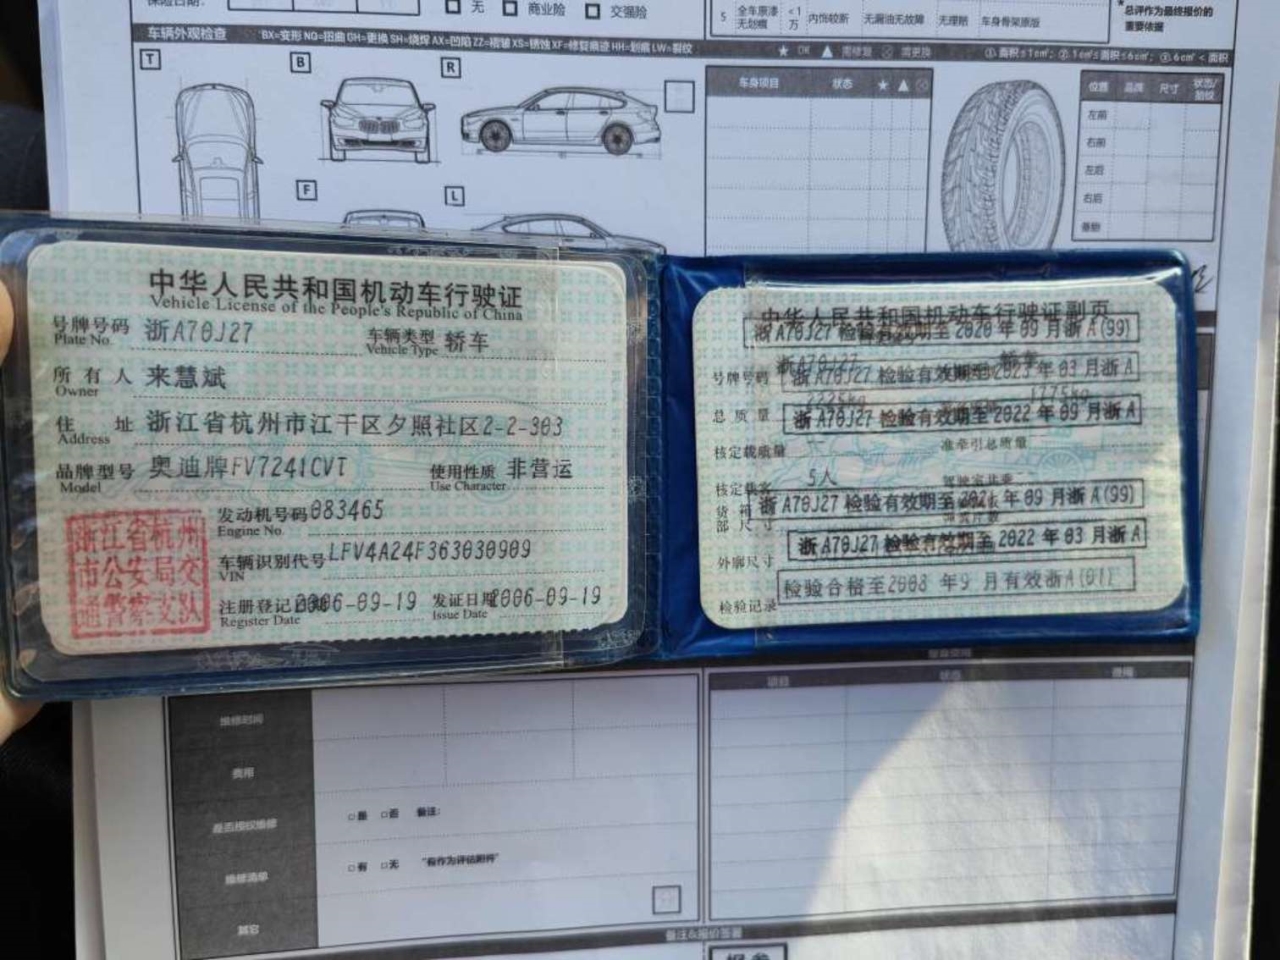 无 商业险 交强险
5 全车原漆 无划痕 <1万 内饰较新 无漏油无故障 无理赔 车身骨架原版
总评作为最终报价的
重要依据
车辆外观检查 BX=变形 NQ=扭曲 GH=更换 SH=烧焊 AX=凹陷 ZZ=褶皱 XS=锈蚀 XF=修复痕迹 HH=划痕 LW=裂纹
★ OK ▲ 需修复 需更换
T B R
F L
车身项目 状态 ★ ▲
位置 品牌 尺寸
左前
右前
左后
右后
备胎
中华人民共和国机动车行驶证
Vehicle License of the People's Republic of China
号牌号码 浙A70J27 车辆类型 轿车
Plate No. Vehicle Type
所有人 来慧斌
Owner
住址 浙江省杭州市江干区夕照社区2-2-303
Address
品牌型号 奥迪牌FV7241CVT 使用性质 非营运
Model Use Character
发动机号码 083465
Engine No.
车辆识别代号 LFV4A24F363030909
VIN
注册登记日期 2006-09-19 发证日期 2006-09-19
Register Date Issue Date
浙江省杭州
市公安局交
通警察支队
中华人民共和国机动车行驶证副页
浙A70J27 检验有效期至2020年09月浙A(99)
号牌号码 浙A70J27 轿车
浙A70J27 检验有效期至2023年03月浙A
总质量
浙A70J27 检验有效期至2022年09月浙A
核定载质量 准牵引总质量
核定载客 5人
浙A70J27 检验有效期至2021年09月浙A(99)
浙A70J27 检验有效期至2022年03月浙A
外廓尺寸
检验记录 检验合格至2008年9月有效浙A(01)
维修时间
费用
是否授权维修 □是 □否 备注:
维修清单 □有 □无 "有作为评估附件"
其它
项目 状态